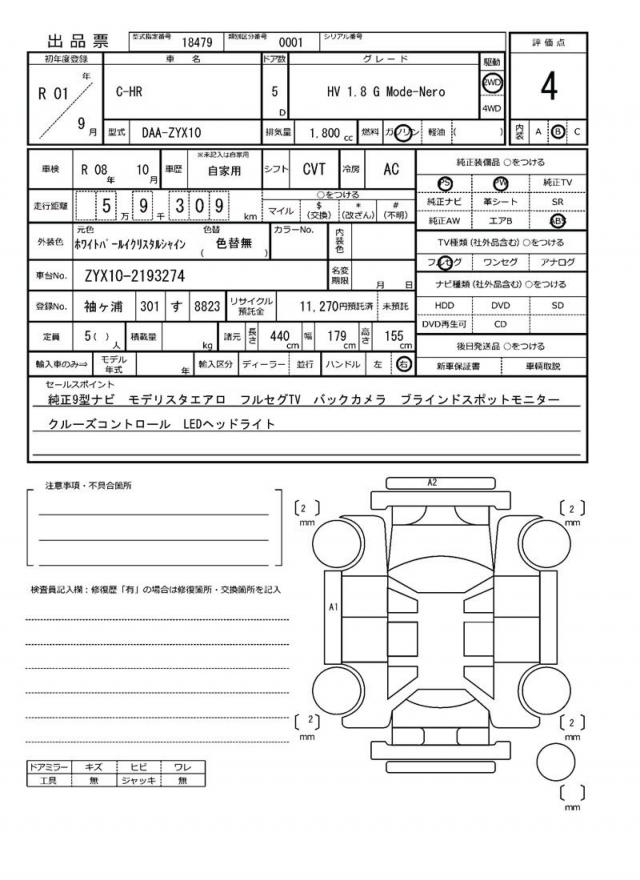 出品票 型式指定番号 18479 類別区分番号 0001 シリアル番号
初年度登録 車 名 ドア数 グレード 駆動 評価点
R 01 年 9 月 C-HR 5 D HV 1.8 G Mode-Nero 2WD 4WD 4
型式 DAA-ZYX10 排気量 1.800 cc 燃料 ガソリン 軽油 ( ) 内装 A B C
車検 R 08 年 10 月 車歴 ※未記入は自家用 自家用 シフト CVT 冷房 AC
純正装備品 ○をつける
PS PW 純正TV
走行距離 5 万 9 千 3 0 9 km ○をつける
マイル $ (交換) * (改ざん) # (不明)
純正ナビ 革シート SR
純正AW エアB ABS
外装色 元色 ホワイトパールイクリスタルシャイン 色替 ( 色替無 ) カラーNo. 内装色
TV種類 (社外品含む) ○をつける
フルセグ ワンセグ アナログ
車台No. ZYX10-2193274 名変期限 月 日
ナビ種類 (社外品含む) ○をつける
登録No. 袖ヶ浦 301 す 8823 リサイクル預託金 11,270円預託済 未預託
HDD DVD SD
DVD再生可 CD
定員 5( ) 人 積載量 kg 諸元 長さ 440 cm 幅 179 cm 高さ 155 cm
後日発送品 ○をつける
輸入車のみ⇒ モデル年式 年 輸入区分 ディーラー 並行 ハンドル 左 右
新車保証書 車輌取説
セールスポイント
純正9型ナビ モデリスタエアロ フルセグTV バックカメラ ブラインドスポットモニター
クルーズコントロール LEDヘッドライト
注意事項・不具合箇所
検査員記入欄：修復歴「有」の場合は修復箇所・交換箇所を記入
A2
〔 2 〕 mm
〔 2 〕 mm
A1
〔 2 〕 mm
〔 2 〕 mm
〔 〕 mm
ドアミラー キズ ヒビ ワレ
工具 無 ジャッキ 無